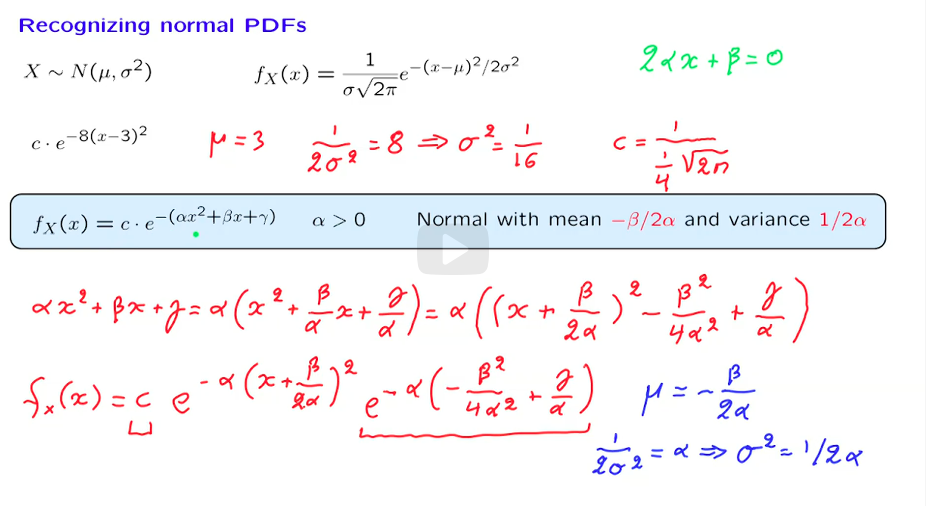 Recognizing normal PDFs
X ∼ N(μ, σ²)    f_X(x) = 1/(σ√2π) e^{-(x-μ)²/2σ²}    2αx + β = 0
c · e^{-8(x-3)²}    μ = 3    1/2σ² = 8 ⇒ σ² = 1/16    c = 1/(1/4 √2π)
f_X(x) = c · e^{-(αx²+βx+γ)}    α > 0    Normal with mean -β/2α and variance 1/2α
αx² + βx + γ = α(x² + β/α x + γ/α) = α((x + β/2α)² - β²/4α² + γ/α)
f_x(x) = c e^{-α(x + β/2α)²} e^{-α(-β²/4α² + γ/α)}    μ = -β/2α
1/2σ² = α ⇒ σ² = 1/2α